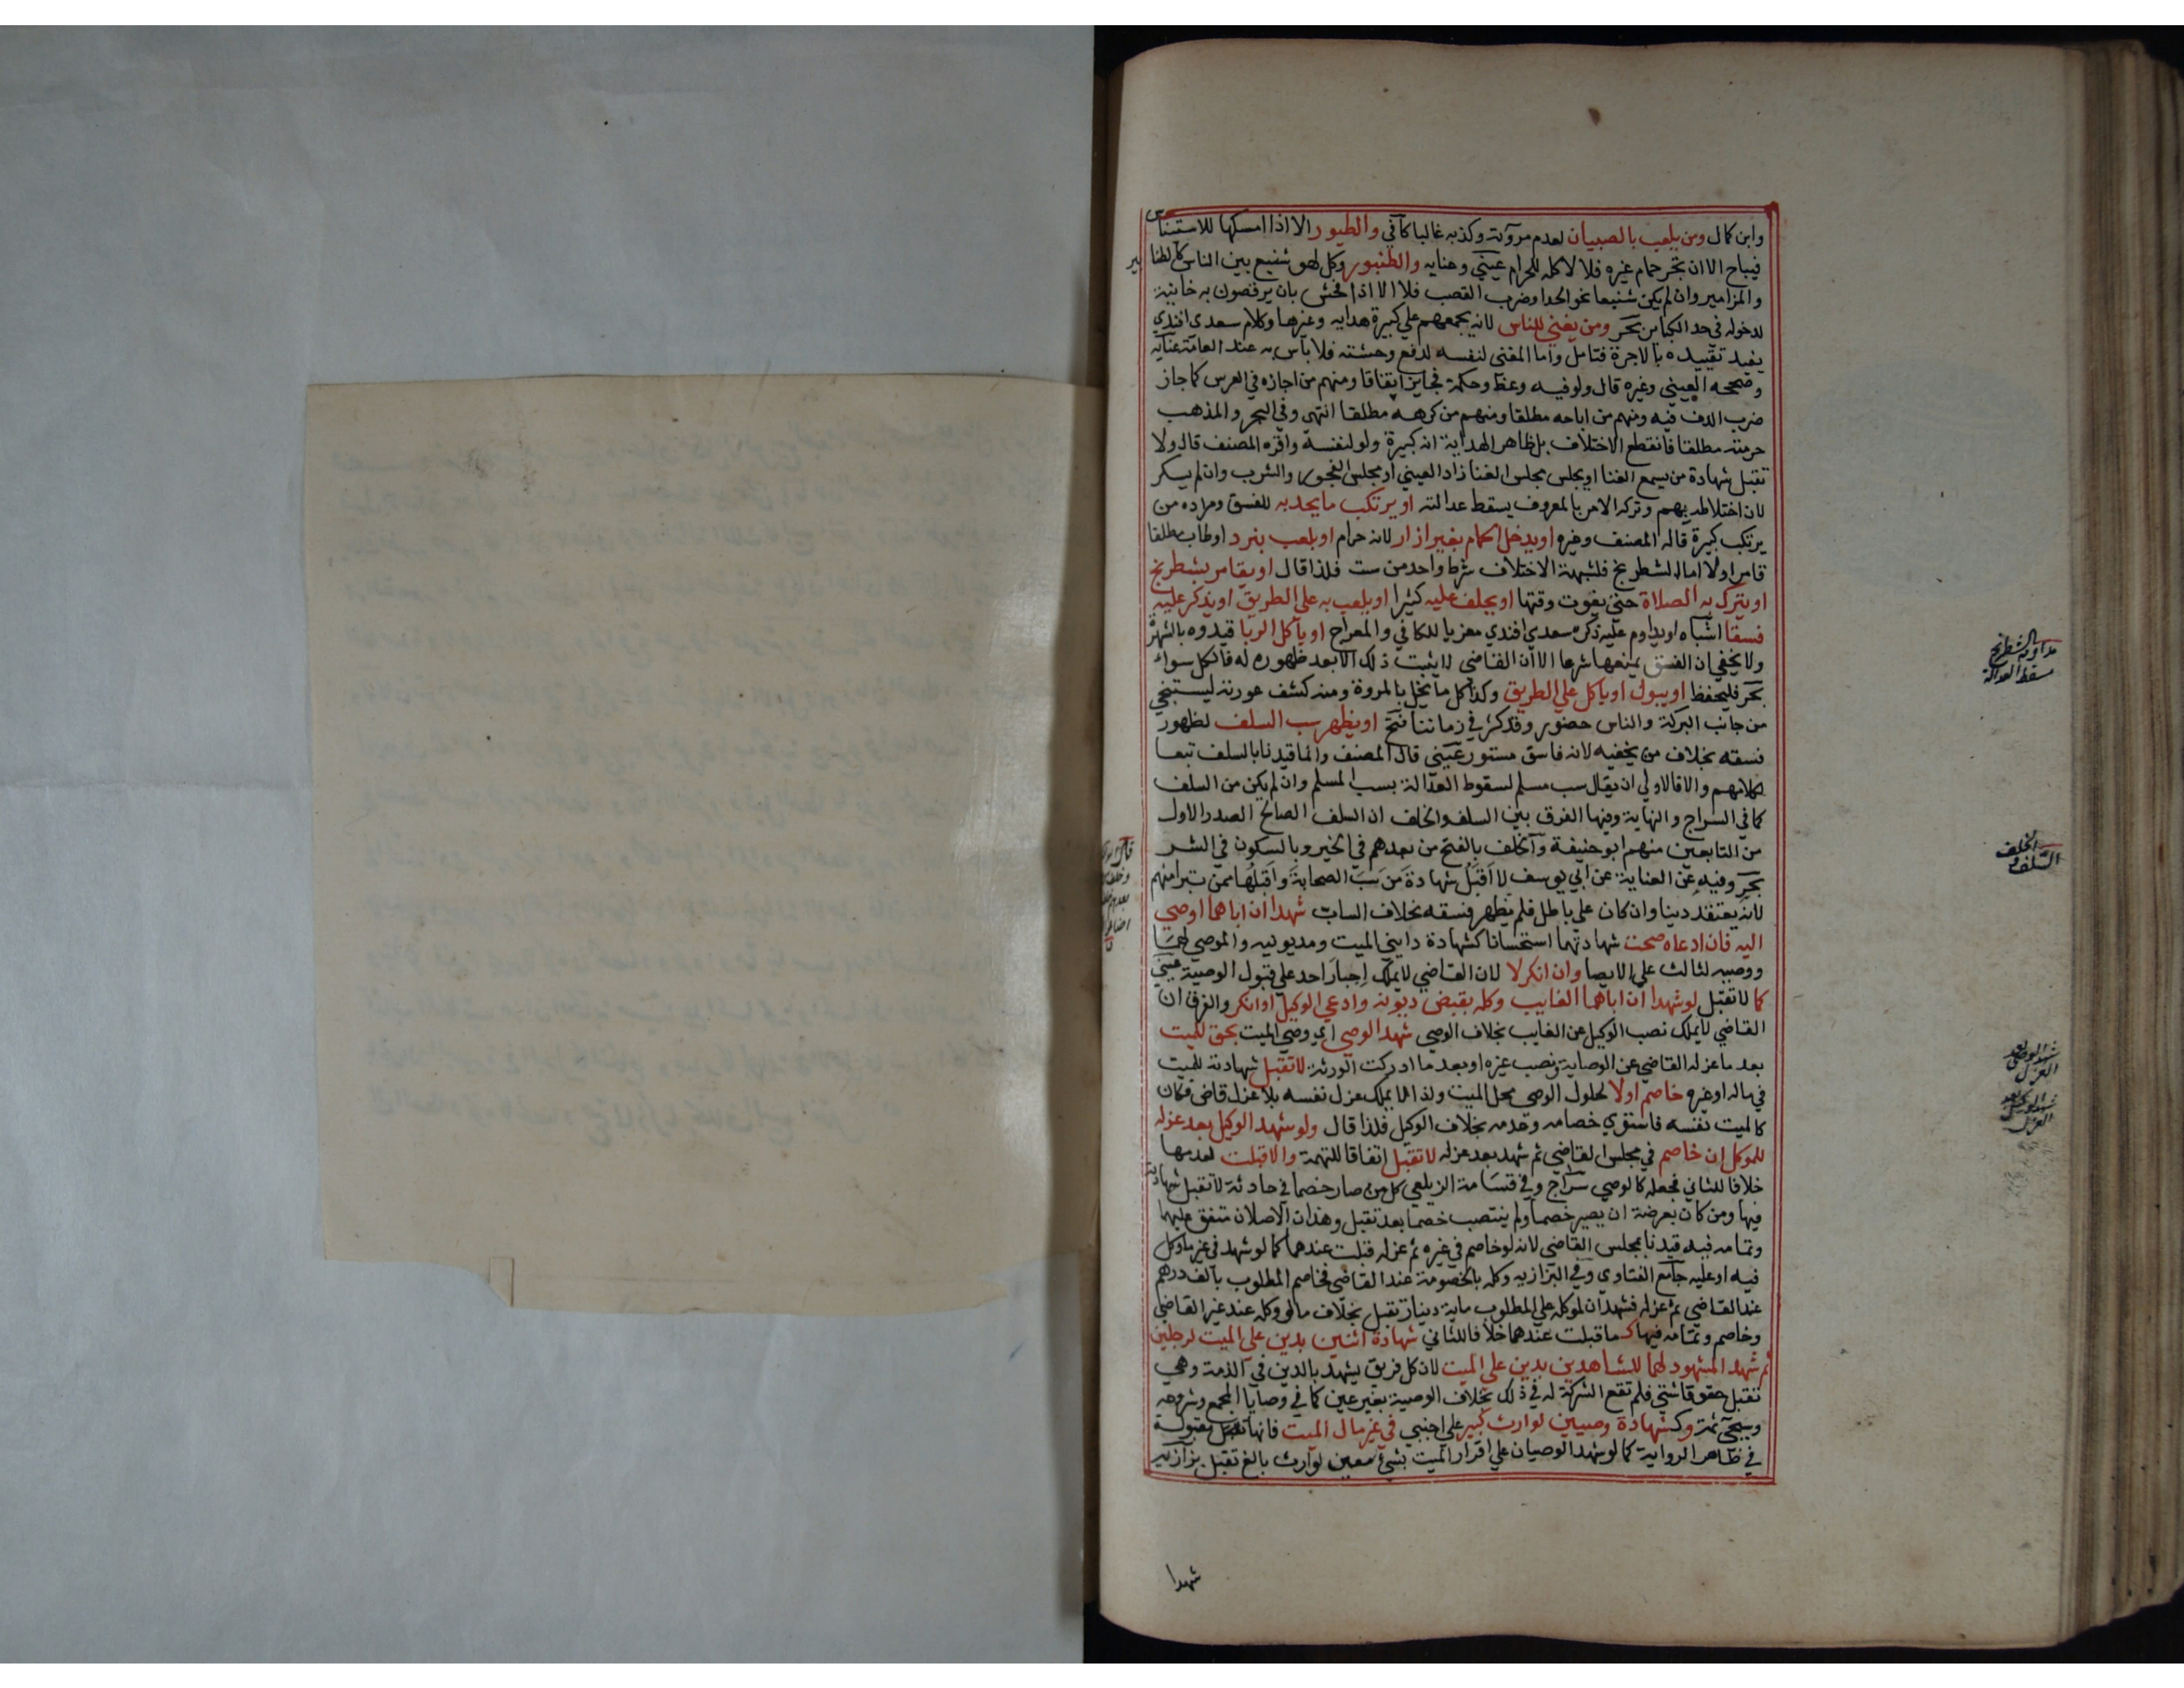 وابن كمال ومن يلعب بالصبيان لعدم مروءته وكذبه غالبا كافي والطيور الا اذا امسكها للاستئناس
فيباح الا ان تجر حمام غيره فلا لاكله للحرام عيني وعنايه والطنبور وكل لهو شنيع بين الناس كالطنابير
والمزامير وان لم يكن شنيعا نحو الحدا وضرب القصب فلا الا اذا فحش بان يرقصون به خانية
لدخوله في حد الكبائر بحر ومن يغني للناس لانه يجمعهم علي كبيرة هدايه وغيرها وكلام سعدي افندي
يفيد تقييده بالاجرة فتامل واما المغني لنفسه لدفع وحشته فلا باس به عند العامة عنايه
وصححه العيني وغيره قال ولو فيه وعظ وحكمة فجايز اتفاقا ومنهم من اجازه في العرس كما جاز
ضرب الدف فيه ومنهم من اباحه مطلقا ومنهم من كرهه مطلقا انتهى وفي البحر والمذهب
حرمته مطلقا فانقطع الاختلاف بل ظاهر الهداية انه كبيرة ولو لنفسه واقره المصنف قال ولا
تقبل شهادة من يسمع الغنا او يجلس مجلس الغنا زاد العيني او مجلس الفجور والشرب وان لم يسكر
لان اختلاطه بهم وتركه الامر بالمعروف يسقط عدالته او يرتكب ما يحد به للفسق ومراده من
يرتكب كبيرة قاله المصنف وغيره او يدخل الحمام بغير ازار لانه حرام او يلعب بنرد او طاب مطلقا
قامر اولا اما الشطرنج فلشبهة الاختلاف شرط واحد من ست فلذا قال او يقامر بشطرنج
او يترك به الصلاة حتى يفوت وقتها او يحلف عليه كثيرا او يلعب به علي الطريق او يذكر عليه
فسقا اشباه او يداوم عليه ذكره سعدي افندي معزيا للكافي والمعراج او ياكل الربا قيدوه بالشهرة
ولا يخفي ان الفسق يمنعها شرعا الا ان القاضي لا يثبت ذلك الا بعد ظهوره له فالكل سواء
بحر فليحفظ او يبول او ياكل علي الطريق وكذا كل ما يخل بالمروة ومنه كشف عورته ليستنجي
من جانب البركة والناس حضور وقد كثر في زماننا فتح او يظهر سب السلف لظهور
فسقه بخلاف من يخفيه لانه فاسق مستور عيني قال المصنف وانما قيدنا بالسلف تبعا
لكلامهم والا فالاولي ان يقال سب مسلم لسقوط العدالة بسب المسلم وان لم يكن من السلف
كما في السراج والنهاية وفيها الفرق بين السلف والخلف ان السلف الصالح الصدر الاول
من التابعين منهم ابو حنيفة والخلف بالفتح من بعدهم في الخير وبالسكون في الشر
بحر وفيه عن العناية عن ابي يوسف لا اقبل شهادة من سب الصحابة واقبلها ممن تبرا منهم
لانه يعتقد دينا وان كان علي باطل فلم يظهر فسقه بخلاف الساب شهدا ان اباهما اوصي
اليه فان ادعاه صحت شهادتهما استحسانا كشهادة دايني الميت ومديونيه والموصي لهما
ووصييه لثالث علي الايصا وان انكر لا لان القاضي لا يملك اجبار احد علي قبول الوصية عيني
كما لا تقبل لو شهدا ان اباهما الغايب وكله بقبض ديونه وادعي الوكيل او انكر والفرق ان
القاضي لا يملك نصب الوكيل عن الغايب بخلاف الوصي شهد الوصي اي وصي الميت بحق للميت
بعد ما عزله القاضي عن الوصاية ونصب غيره او بعد ما ادركت الورثة لا تقبل شهادته للميت
في ماله او غيره خاصم اولا لحلول الوصي محل الميت ولذا لا يملك عزل نفسه بلا عزل قاض فكان
كالميت نفسه فاستوي خصامه وعدمه بخلاف الوكيل فلذا قال ولو شهد الوكيل بعد عزله
للموكل ان خاصم في مجلس القاضي ثم شهد بعد عزله لا تقبل اتفاقا للتهمة والا قبلت لعدمها
خلافا للثاني فجعله كالوصي سراج وفي قسامة الزيلعي كل من صار خصما في حادثة لا تقبل شهادته
فيها ومن كان بعرضة ان يصير خصما ولم ينتصب خصما بعد تقبل وهذان الاصلان متفق عليهما
وتمامه فيه قيدنا بمجلس القاضي لانه لو خاصم في غيره ثم عزله قبلت عندهما كما لو شهد في غير ما وكل
فيه او عليه جامع الفتاوي وفي البزازيه وكله بالخصومة عند القاضي فخاصم المطلوب بالف درهم
عند القاضي ثم عزله فشهد ان لموكله علي المطلوب ماية دينار تقبل بخلاف ما لو وكله عند غير القاضي
وخاصم وتمامه فيها كـما قبلت عندهما خلافا للثاني شهادة اثنين بدين علي الميت لرجلين
ثم شهد المشهود لهما للشاهدين بدين علي الميت لان كل فريق يشهد بالدين في الذمة وهي
تقبل حقوقا شتي فلم تقع الشركة له في ذلك بخلاف الوصية بغير عين كما في وصايا المجمع وشروحه
وسيجي ثمة وكشهادة وصيين لوارث كبير علي اجنبي في غير مال الميت فانها مقبولة
في ظاهر الرواية كما لو شهد الوصيان علي اقرار الميت بشيء معين لوارث بالغ تقبل بزازيه
شهدا
مداومة الشطرنج
مسقط العدالة
الخلف
السلف و
شهد الوصي بعد
العزل
شهد الوكيل بعد
العزل